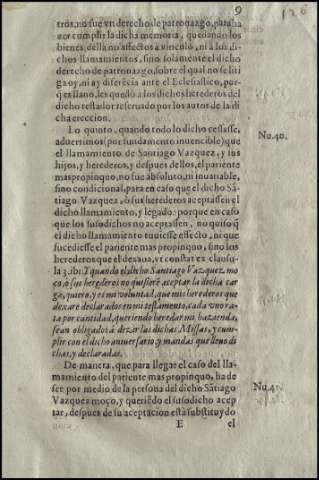 9
126
tros, no fue vn derecho de patronazgo, para ha
zer cumplir la dicha memoria, quedando los
bienes della no affectos a vinculo, ni a los di
chos llamamientos, sino solamente el dicho
derecho de patronazgo, sobre el qual no se liti
ga oy, ni ay diferẽcia ante el Ecclesiastico, por
q̃ es llano, les quedò a los dichos herederos del
dicho testador reseruado por los autos de la di
cha ereccion.
Lo quinto, quando todo lo dicho cessasse, Nu.40.
aduertimos (por fundamento inuencible) que
el llamamiento de Santiago Vazquez, y sus
hijos, y herederos, y despues dellos, el pariente
mas propinquo, no fue absoluto, ni inuariable,
sino condicional, para en caso que el dicho Sã
tiago Vazquez, ò sus herederos aceptassen el
dicho llamamiento, y legado: porque en caso
que los susodichos no aceptassen, no quiso q̃
el dicho llamamiento tuuiesse effecto, ni que
sucediesse el pariente mas propinquo, sino los
herederos que el dexaua, vt constat ex clausu
la 3. ibi: Y quando el dicho Santiago Vazquez, mo
ço, o sus herederos no quisierẽ aceptar la dicha car
ga, quiero, y es mi voluntad, que mis herederos que
dexare declarados en mi testamento, cada vno ra-
ta por cantidad, queriendo heredar mi hazienda,
sean obligados a dezir las dichas Missas, y cum-
plir con el dicho aniuersario y mandas que lleuo di
chas, y declaradas.
De manera, que para llegar el caso del lla- Nu.41.
mamiento del pariente mas propinquo, ha de
ser por medio de la persona del dicho Sãtiago
Vazquez moço, y queriẽdo el susodicho acep
tar, despues de su aceptacion està substituydo
E el